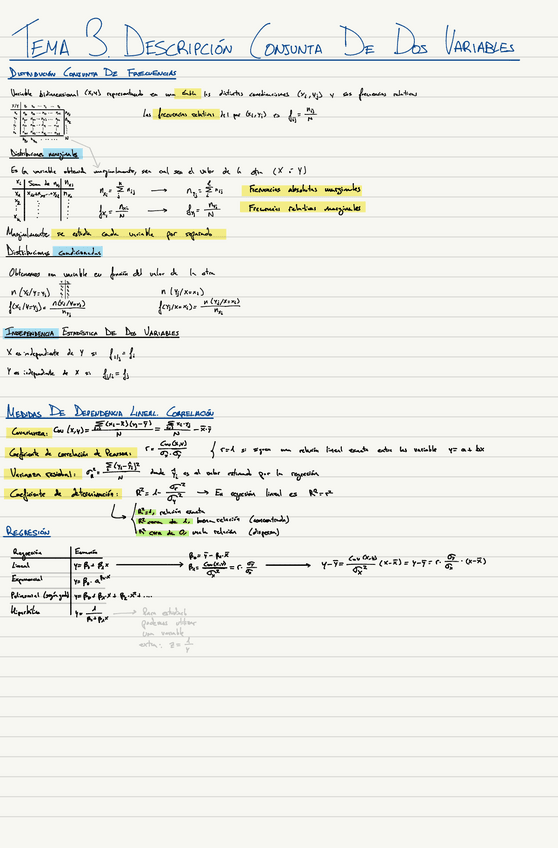 TEMA 3. DESCRIPCIÓN CONJUNTA DE DOS VARIABLES
DISTRIBUCIÓN CONJUNTA DE FRECUENCIAS
Variable bidimensional (X,Y) representando en una tabla las distintas combinaciones (xi, yj) y sus frecuencias relativas
Las frecuencias relativas del par (xi, yj) es fij = nij/N
Distribuciones marginales
Es la variable obtenida marginalmente, sea cual sea el valor de la otra (X o Y)
Frecuencias absolutas marginales
Frecuencias relativas marginales
Marginalmente se estudia cada variable por separado
Distribuciones condicionadas
Obtenemos una variable en función del valor de la otra
n (xi/Y=yj)
n (yj/X=xi)
f(xi/Y=yj) = n(xi/Y=yj)/nyj
f(yj/X=xi) = n(yj/X=xi)/nxi
INDEPENDENCIA ESTADÍSTICA DE DOS VARIABLES
X es independiente de Y si fi/j = fi
Y es independiente de X si fj/i = fj
MEDIDAS DE DEPENDENCIA LINEAL. CORRELACIÓN
Covarianza: Cov (x,y) = Σ(xi-x̄)(yj-ȳ)/N = Σ xi·yj/N - x̄·ȳ
Coeficiente de correlación de Pearson: r = Cov(x,y)/σx·σy { r=1 si siguen una relación lineal exacta entre las variables y=a+bx
Varianza residual: σr² = Σ(yj-ŷj)²/N donde ŷj es el valor estimado por la regresión
Coeficiente de determinación: R² = 1 - σr²/σy² → En regresión lineal es R²=r²
R²=1, relación exacta
R² cerca de 1, buena relación (concentrada)
R² cerca de 0, mala relación (dispersa)
REGRESIÓN
Regresión Ecuación
Lineal y=β0+β1x → β0 = ȳ - β1·x̄
β1 = Cov(x,y)/σx² = r·σy/σx → y-ȳ = Cov(x,y)/σx² (x-x̄) = y-ȳ = r·σy/σx·(x-x̄)
Exponencial
Polinomial (según grado) y=β0+β1·x+β2·x²+....
Hiperbólica y = 1/β0+β1x
Para estudiarla
podemos utilizar
una variable
extra: z = 1/y